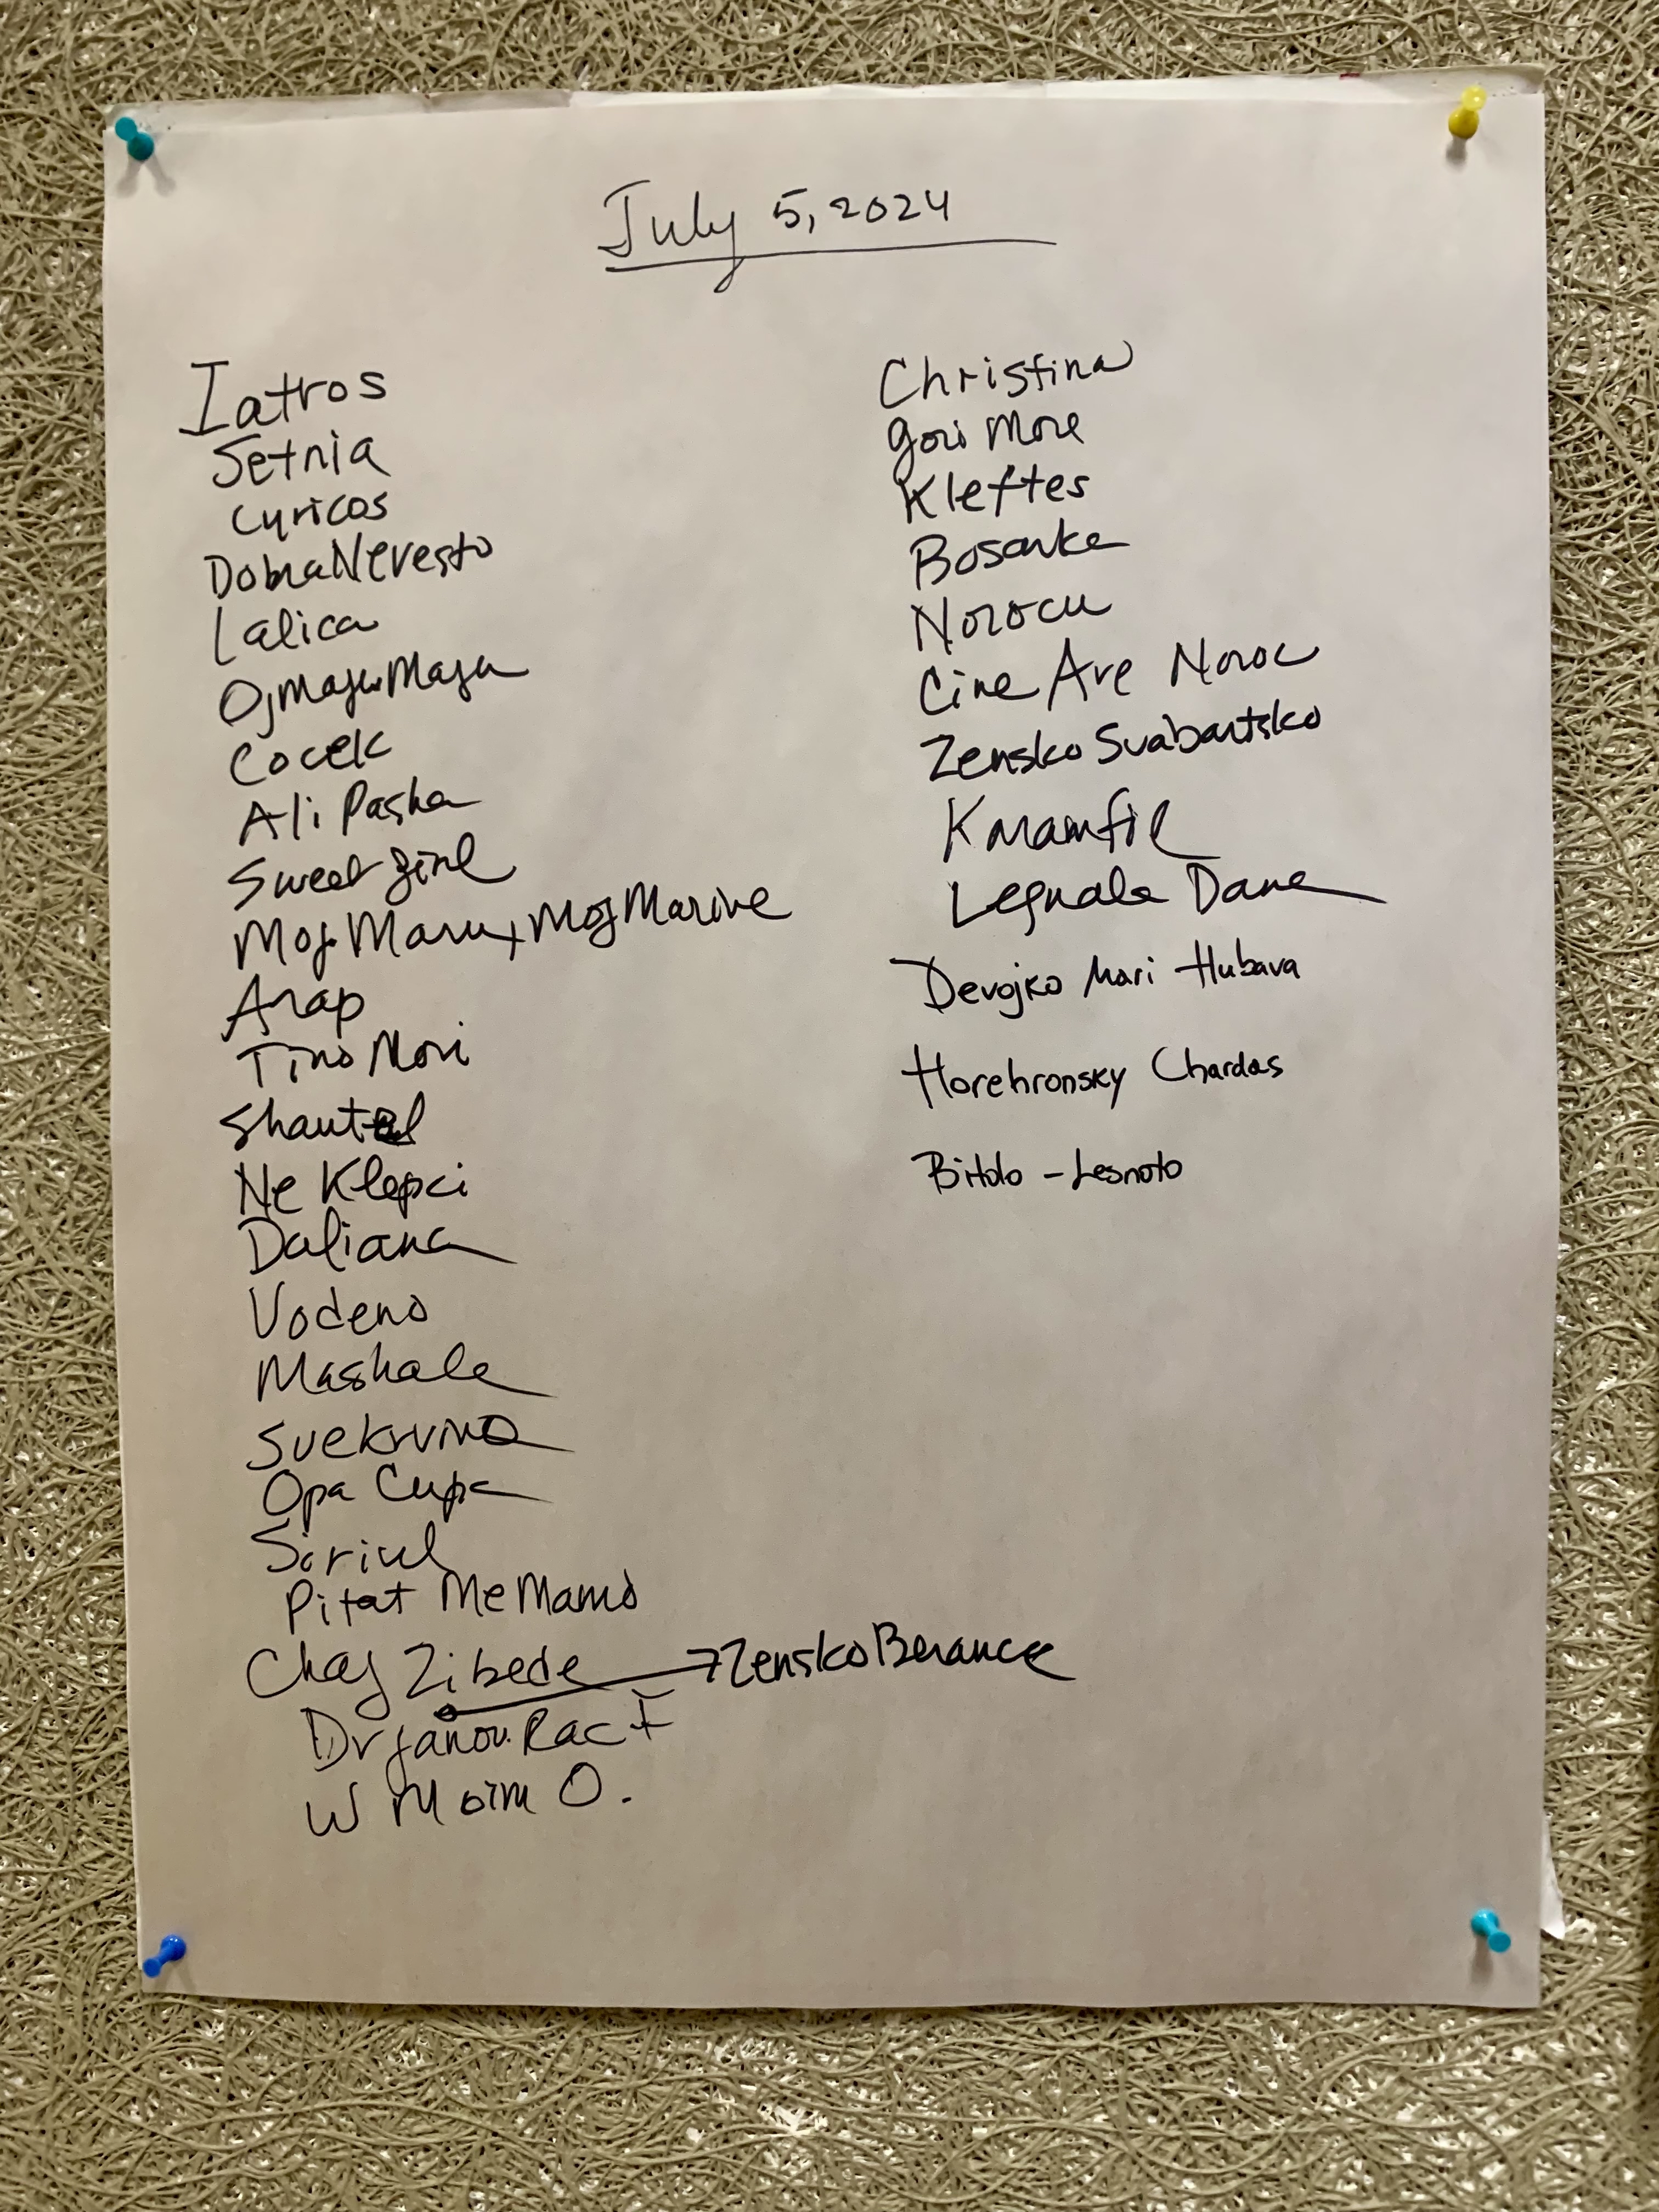 July 5, 2024
Iatros
Setnia
Cyricos
Dobra Nevesto
Lalica
Oj Maju Maju
Cocek
Ali Pasha
Sweet Girl
Moj Maru + Moj Marine
Arap
Tino Mori
Shantel
Ne Klepci
Daliana
Vodeno
Mashala
Svekrvino
Opa Cupa
Siriul
Pitat Me Mamo
Chaj Zibede → Zensko Berance
Drjanov. Rac
W Moim O.
Christina
Gori More
Kleftes
Bosarka
Norocu
Cine Are Noroc
Zensko Svabartsko
Karamfil
Legnala Dana
Devojko Mari Hubava
Horehronsky Chardas
Bitolo - Lesnoto